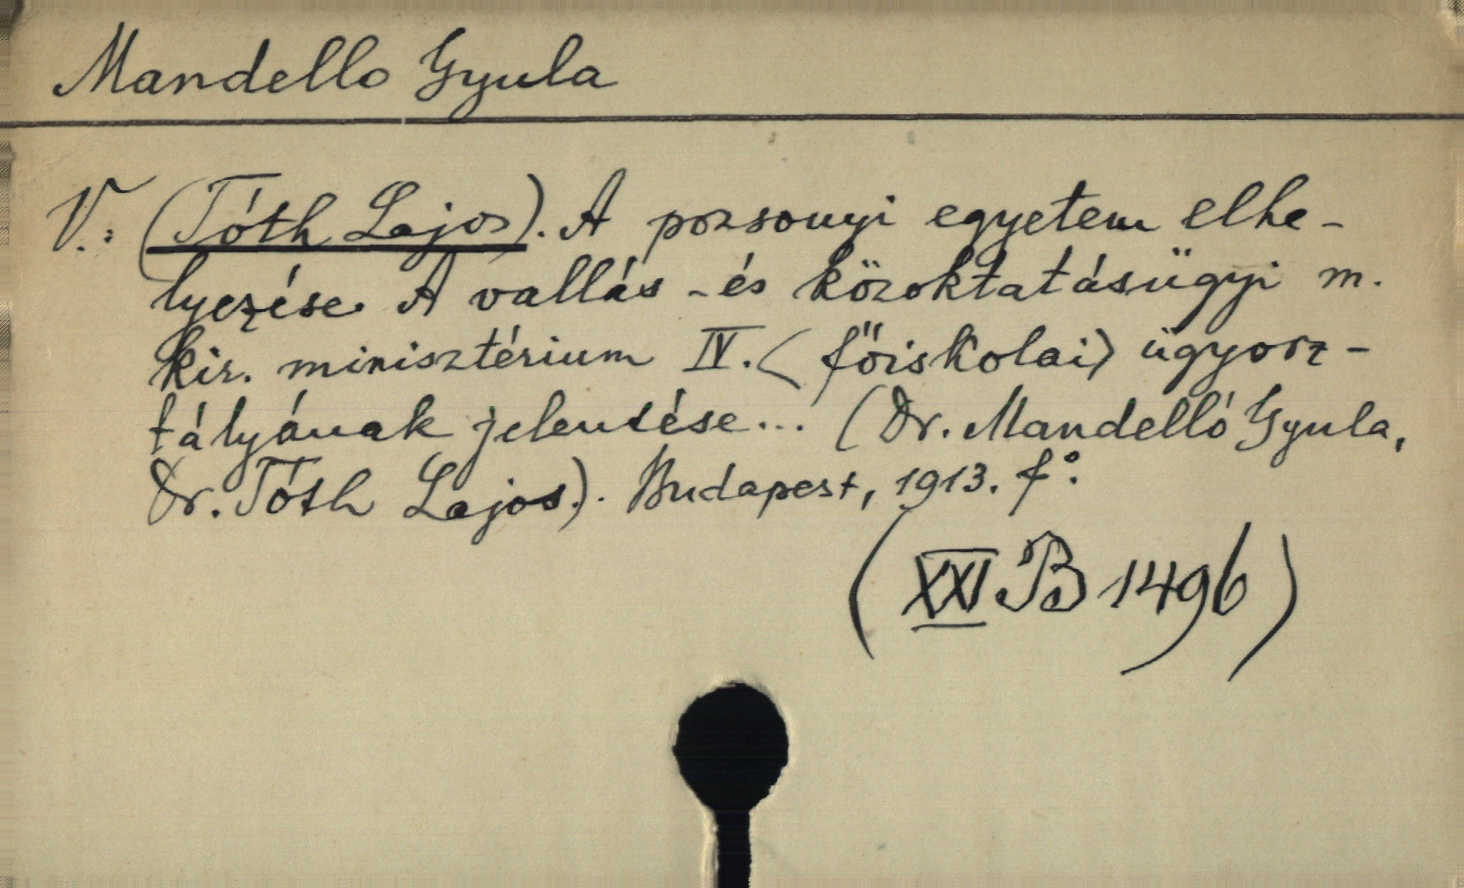 Mandello Gyula
V.: (Tóth Lajos). A pozsonyi egyetem elhe-
lyezése. A vallás - és közoktatásügyi m.
kir. minisztérium IV. (főiskolai) ügyosz-
tályának jelentése... (Dr. Mandelló Gyula,
Dr. Tóth Lajos.). Budapest, 1913. f°.
(XXI B 1496)